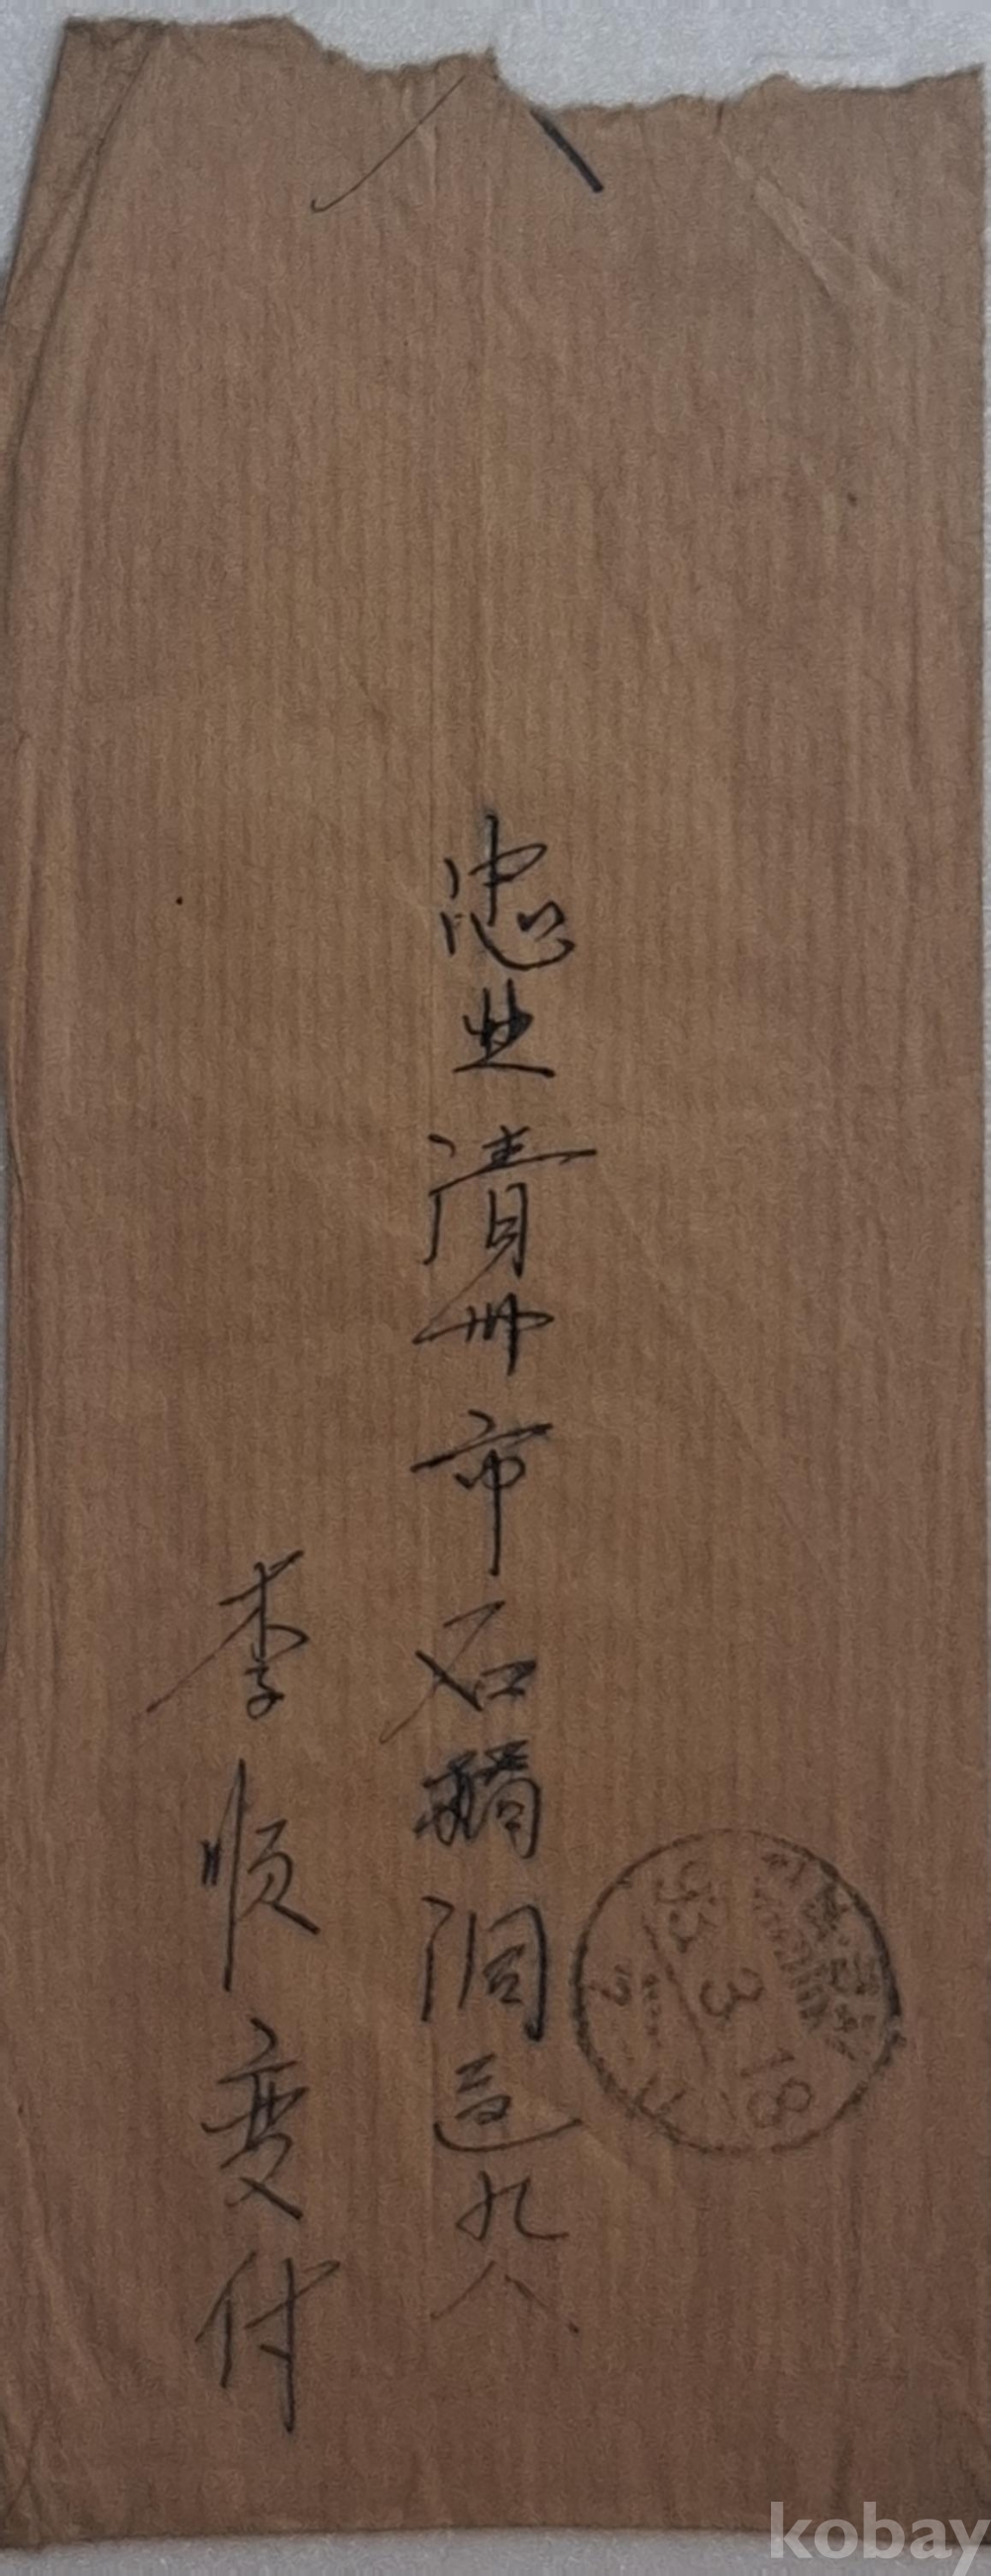 忠北清州市石橋洞九八
李順変付
3 18
kobay